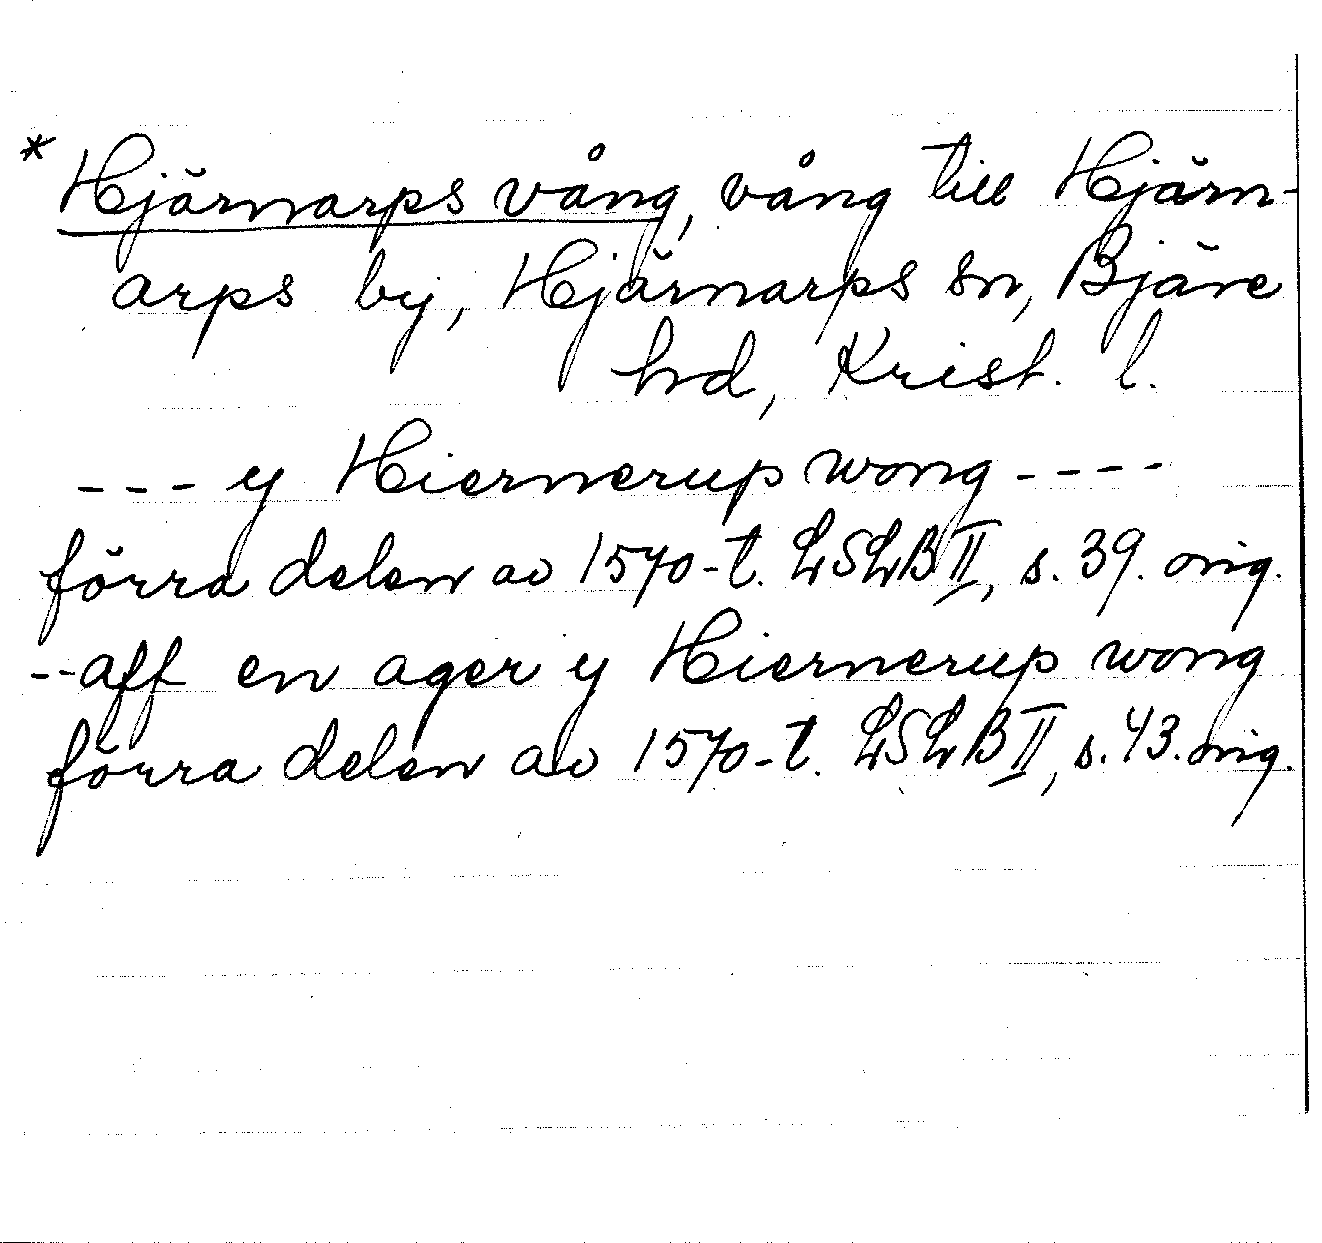 * Hjärnarps vång, vång till Hjärn-
arps by, Hjärnarps sn, Bjäre
hd, Krist. l.
--- y Hiernerup wong ----
förra delen av 1570-t. LSLB II, s. 39. orig.
-- aff en ager y Hiernerup wong
förra delen av 1570-t. LSLB II, s. 43. orig.